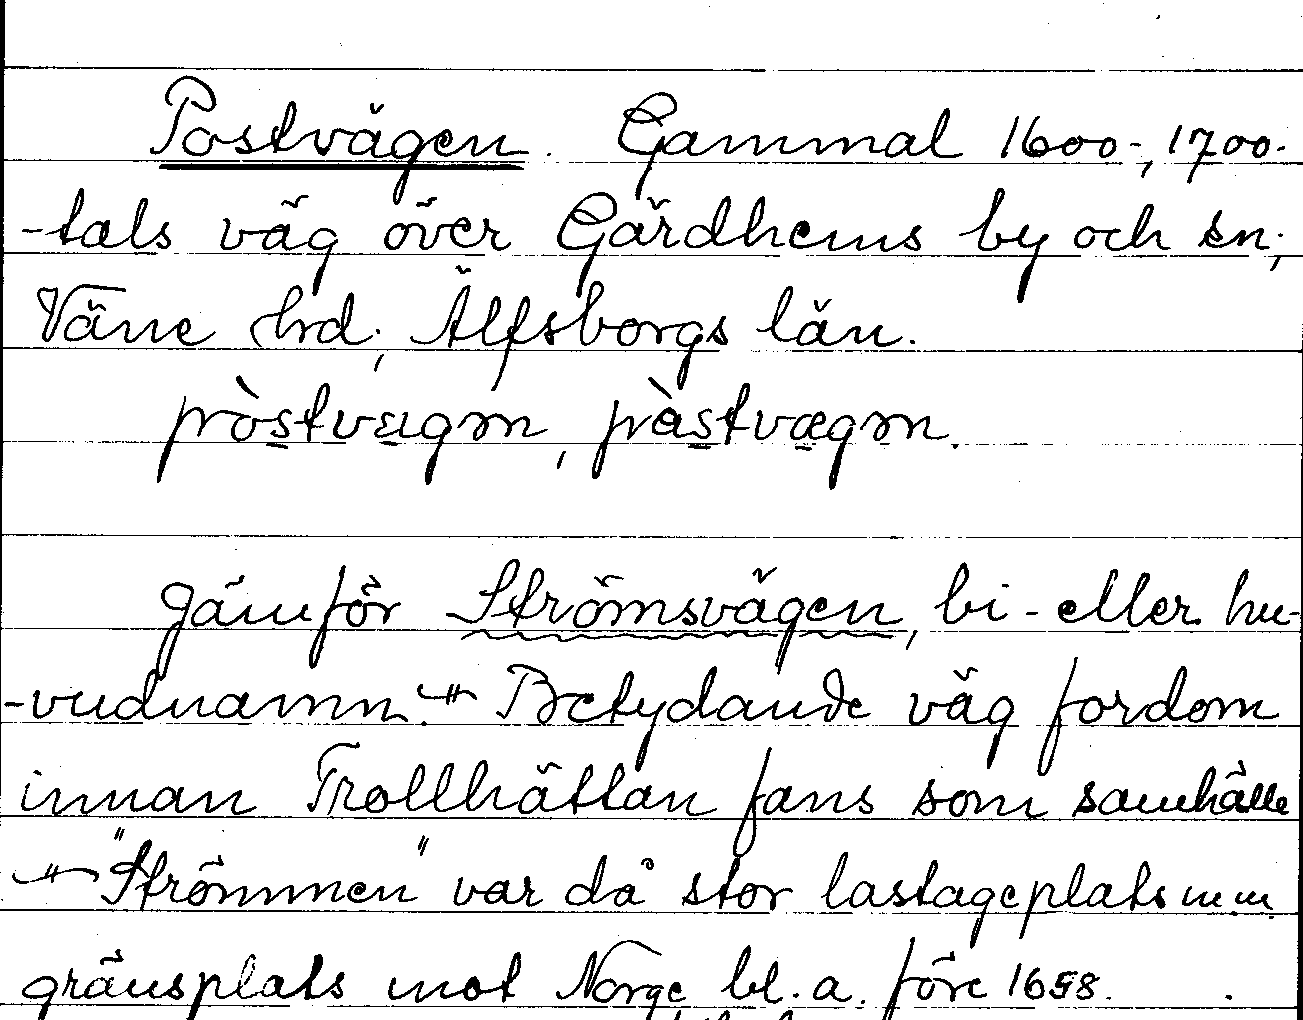 Postvägen. Gammal 1600-, 1700-
-tals väg över Gärdhems by och sn,
Väne hrd, Älfsborgs län.
pòstvægɷn, pàstvægɷn.
Jämför Strömsvägen, bi- eller hu-
-vudnamn. Betydande väg fordom
innan Trollhättan fans som samhälle
"Strömmen" var då stor lastageplats m.m.
gränsplats mot Norge bl. a. före 1658.